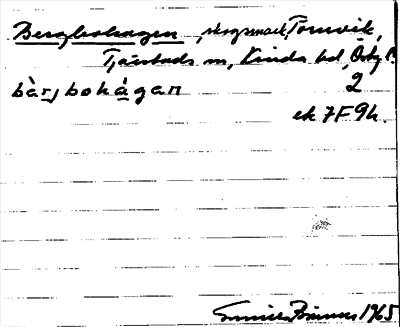 Bergbohagen, skogsmark, Tomvik,
Tjärstads sn, Kinda hd, Ög l.
bàrjbohágan 2
ek 7F9h.
1965